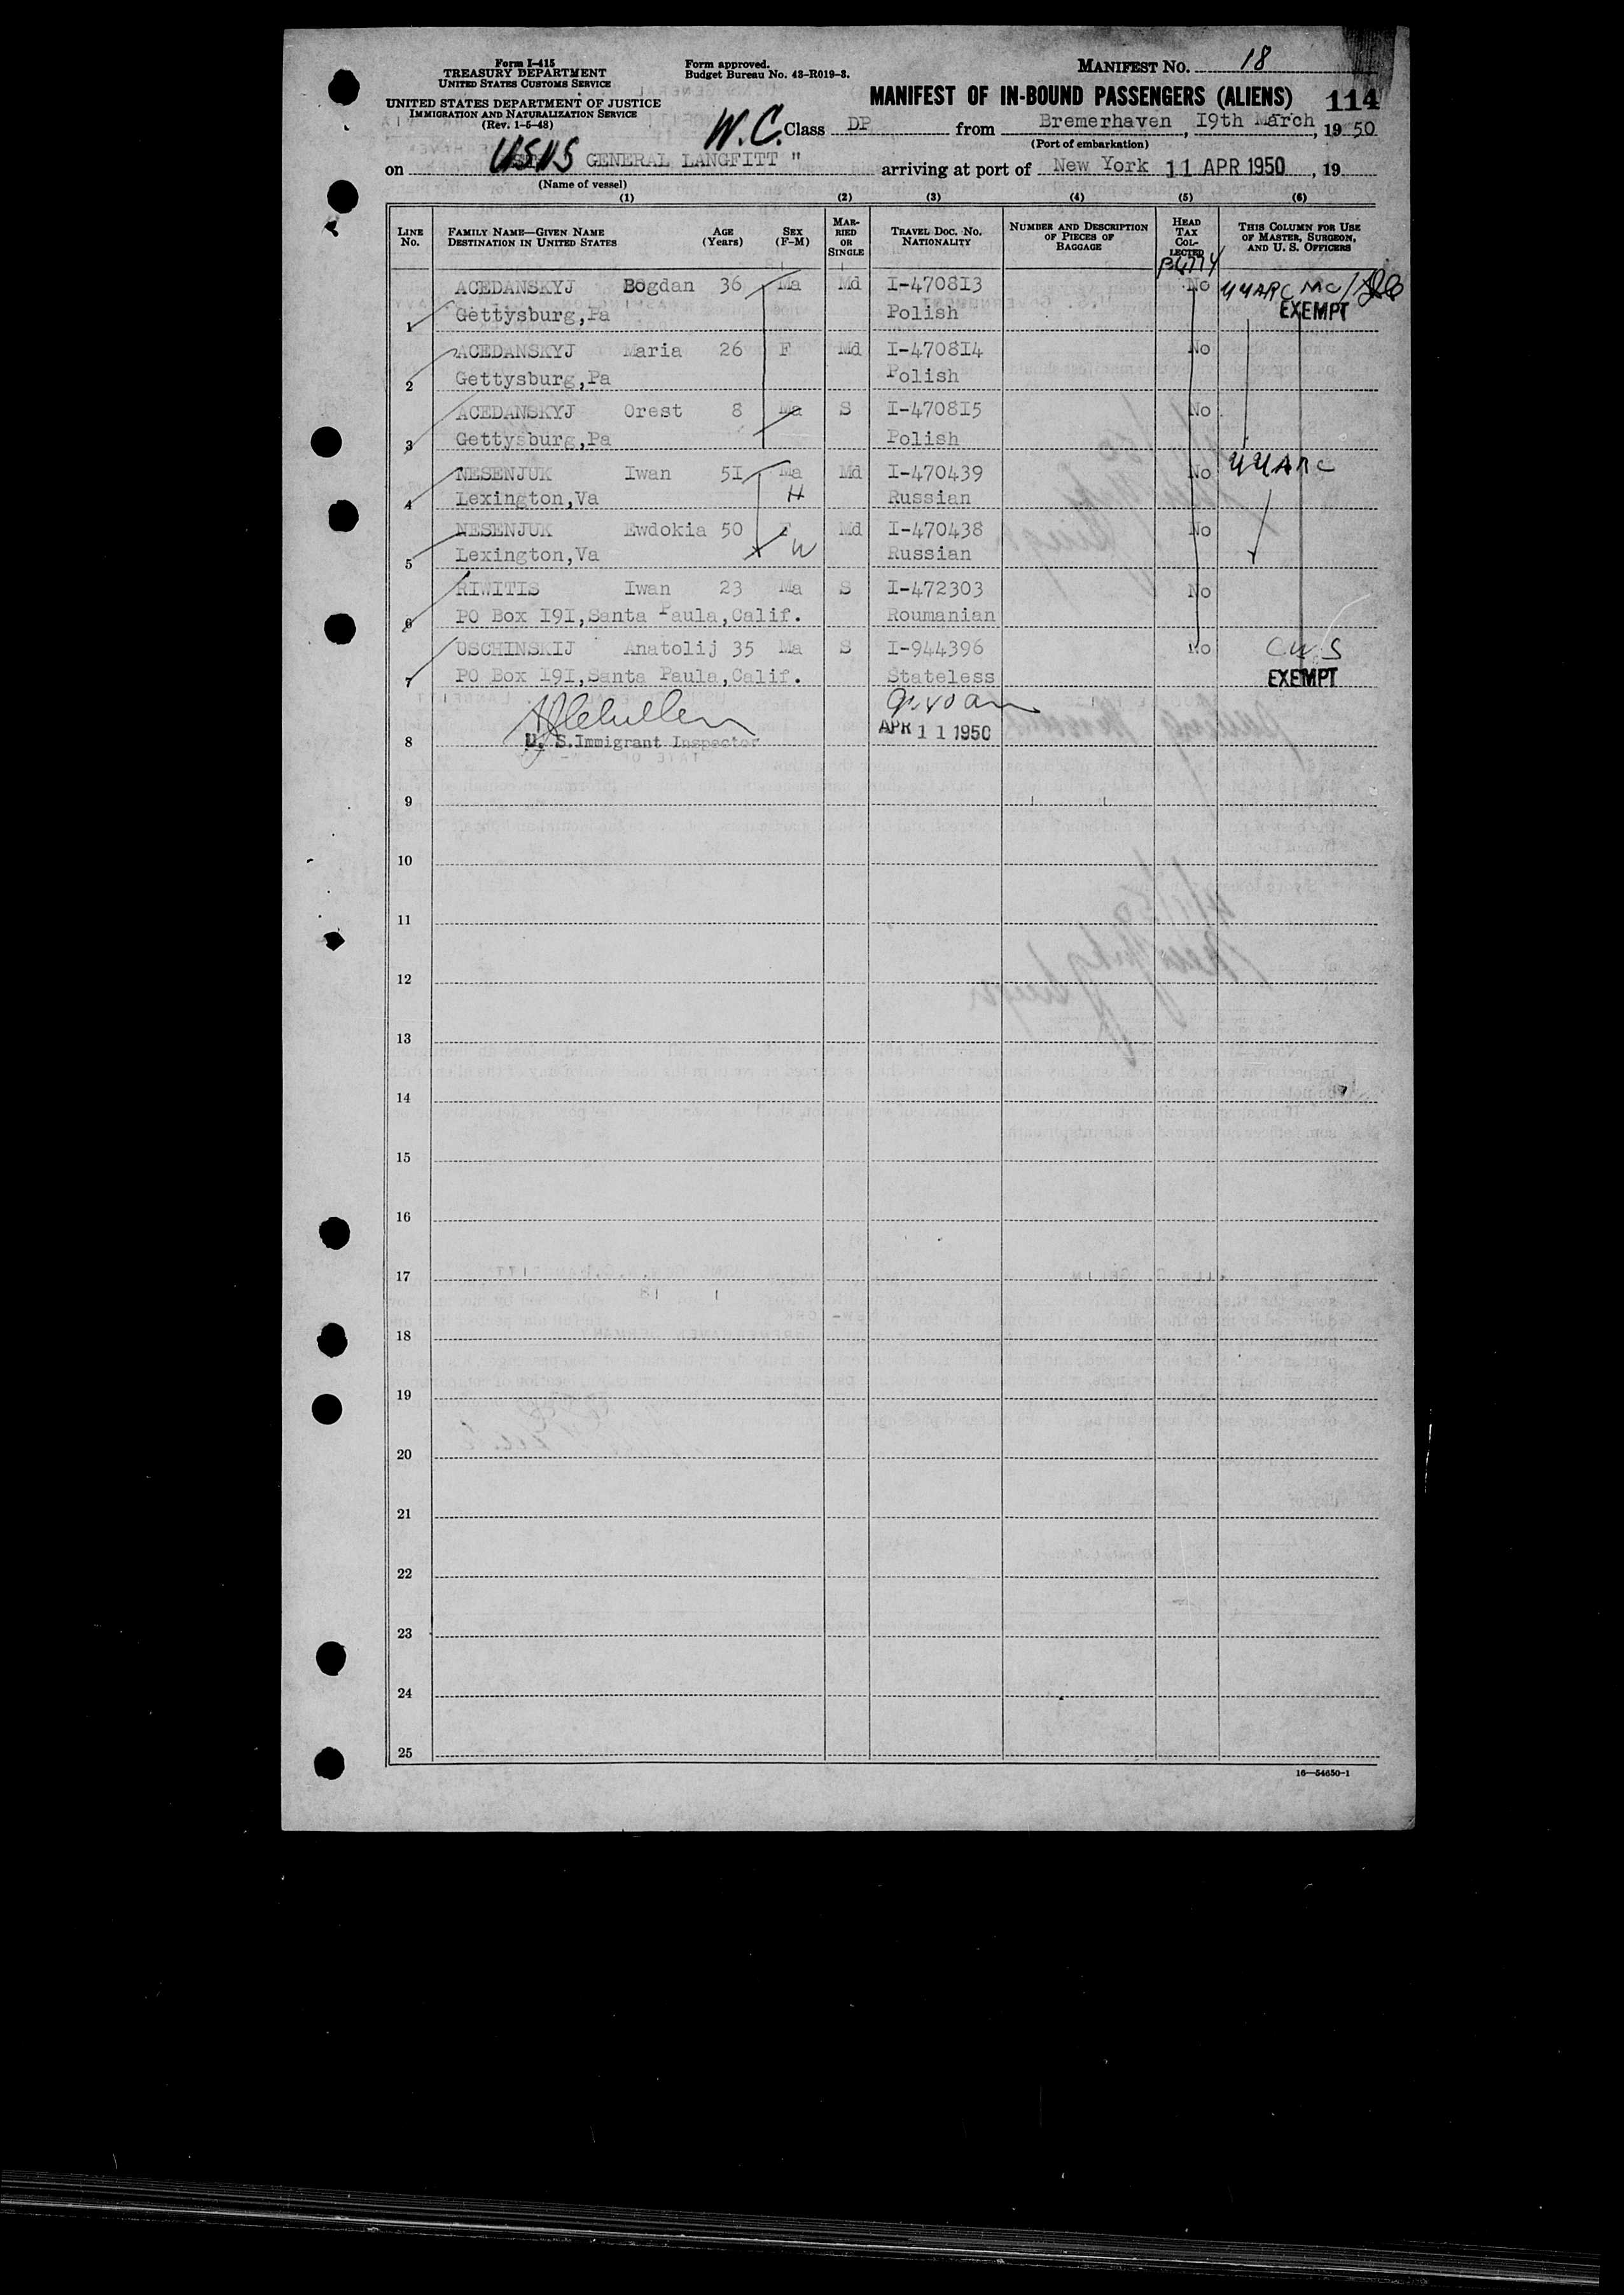 Form I-415
TREASURY DEPARTMENT
UNITED STATES CUSTOMS SERVICE
UNITED STATES DEPARTMENT OF JUSTICE
IMMIGRATION AND NATURALIZATION SERVICE
(Rev. 1-5-48)
Form approved.
Budget Bureau No. 43-R019-3.
MANIFEST No. 18
MANIFEST OF IN-BOUND PASSENGERS (ALIENS) 114
W.C. Class DP from Bremerhaven, I9th March, 1950
(Port of embarkation)
on USNS GENERAL LANGFITT " arriving at port of New York 11 APR 1950, 19
(Name of vessel)
(1) (2) (3) (4) (5) (6)
LINE No. FAMILY NAME—GIVEN NAME DESTINATION IN UNITED STATES AGE (Years) SEX (F-M) MARRIED OR SINGLE TRAVEL DOC. NO. NATIONALITY NUMBER AND DESCRIPTION OF PIECES OF BAGGAGE HEAD TAX COLLECTED THIS COLUMN FOR USE OF MASTER, SURGEON, AND U. S. OFFICERS
ACEDANSKYJ Bogdan 36 Ma Md I-470813 No
1 Gettysburg,Pa Polish EXEMPT
ACEDANSKYJ Maria 26 F Md I-470814 No
2 Gettysburg,Pa Polish
ACEDANSKYJ Orest 8 Ma S I-470815 No
3 Gettysburg,Pa Polish
NESENJUK Iwan 5I Ma Md I-470439 No
4 Lexington,Va H Russian
NESENJUK Ewdokia 50 F Md I-470438 No
5 Lexington,Va W Russian
RIWITIS Iwan 23 Ma S I-472303 No
6 PO Box I9I,Santa Paula,Calif. Roumanian
USCHINSKIJ Anatolij 35 Ma S I-944396 No C W S
7 PO Box I9I,Santa Paula,Calif. Stateless EXEMPT
8 U. S. Immigrant Inspector APR 11 1950
9
10
11
12
13
14
15
16
17
18
19
20
21
22
23
24
25
16—54650-1